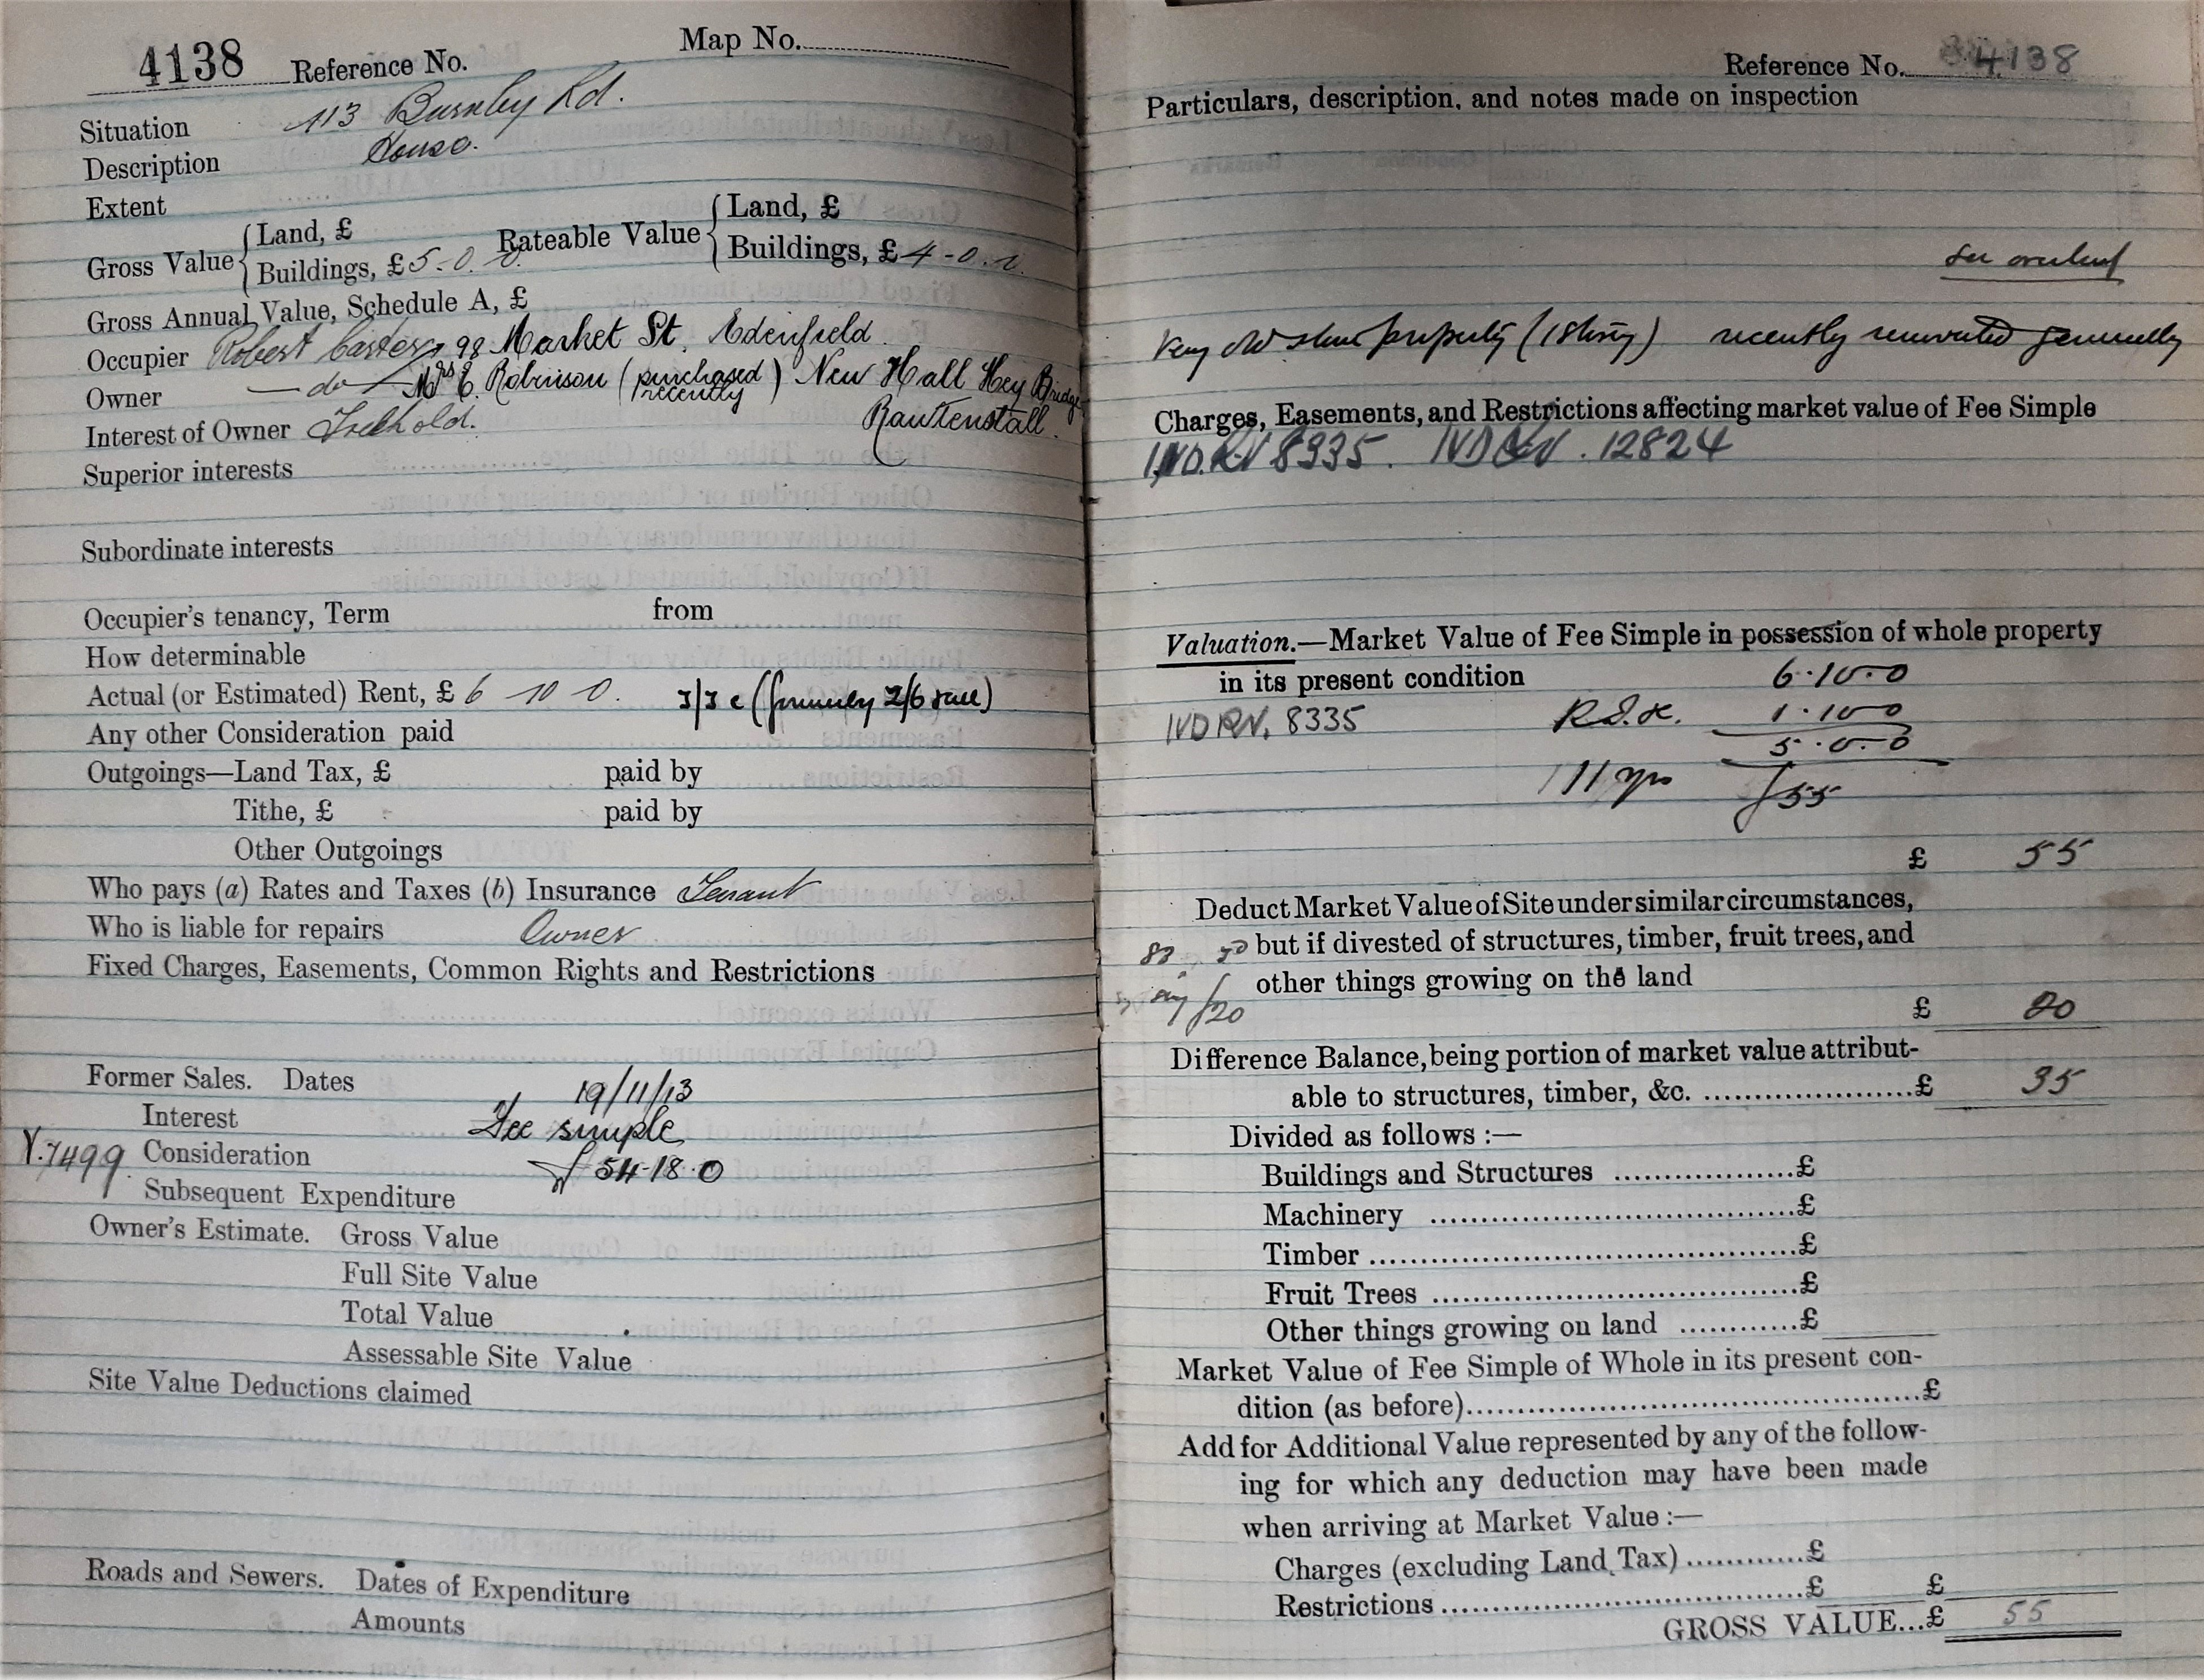 4138 Reference No. Map No.
Situation 113 Burnley Rd.
Description House.
Extent
Gross Value { Land, £
Buildings, £ 5-0-0 Rateable Value { Land, £
Buildings, £ 4-0-0
Gross Annual Value, Schedule A, £
Occupier Robert 98 Market St. Edenfield
Owner — do — Mrs E. Robinson (purchased recently) New Hall Hey Bridge
Interest of Owner Freehold. Rawtenstall.
Superior interests
Subordinate interests
Occupier's tenancy, Term from
How determinable
Actual (or Estimated) Rent, £ 6 10 0. 3/3 (formerly 2/6)
Any other Consideration paid
Outgoings—Land Tax, £ paid by
Tithe, £ paid by
Other Outgoings
Who pays (a) Rates and Taxes (b) Insurance Tenant
Who is liable for repairs Owner
Fixed Charges, Easements, Common Rights and Restrictions
Former Sales. Dates 19/11/13
Interest Fee simple
Y.7499 Consideration £54-18-0
Subsequent Expenditure
Owner's Estimate. Gross Value
Full Site Value
Total Value
Assessable Site Value
Site Value Deductions claimed
Roads and Sewers. Dates of Expenditure
Amounts
Reference No. 4138
Particulars, description, and notes made on inspection
See overleaf
Very old stone property (1 string) recently renovated generally
Charges, Easements, and Restrictions affecting market value of Fee Simple
IVD. RN 8335. IVD RN. 12824
Valuation.—Market Value of Fee Simple in possession of whole property
in its present condition 6-10-0
IVD RN. 8335 1-10-0
5-0-0
11 yrs £55
£ 55
Deduct Market Value of Site under similar circumstances,
but if divested of structures, timber, fruit trees, and
other things growing on the land
say £20
£ 20
Difference Balance, being portion of market value attribut-
able to structures, timber, &c. ......................£ 35
Divided as follows :—
Buildings and Structures ..................£
Machinery ....................................£
Timber ..........................................£
Fruit Trees ....................................£
Other things growing on land ............£
Market Value of Fee Simple of Whole in its present con-
dition (as before)..............................................£
Add for Additional Value represented by any of the follow-
ing for which any deduction may have been made
when arriving at Market Value :—
Charges (excluding Land Tax) ............£
Restrictions ....................................£ £
GROSS VALUE...£ 55